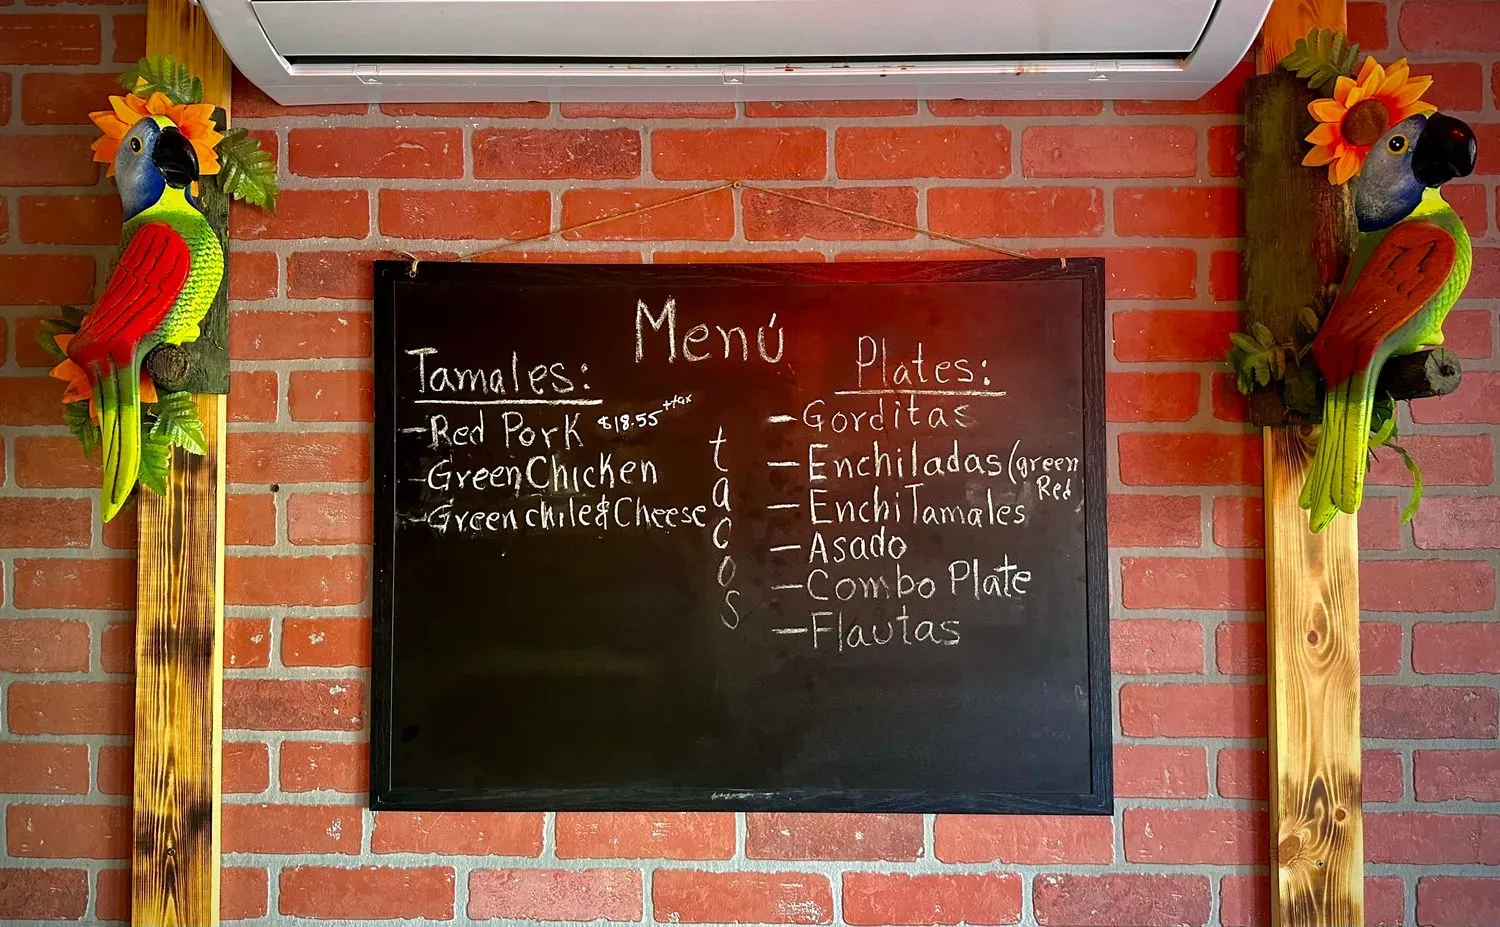 Menú
Tamales:
-Red Pork $18.55 +tax
-Green Chicken
-Green chile & Cheese
tacos
Plates:
-Gorditas
-Enchiladas (green
Red
-EnchiTamales
-Asado
-Combo Plate
-Flautas